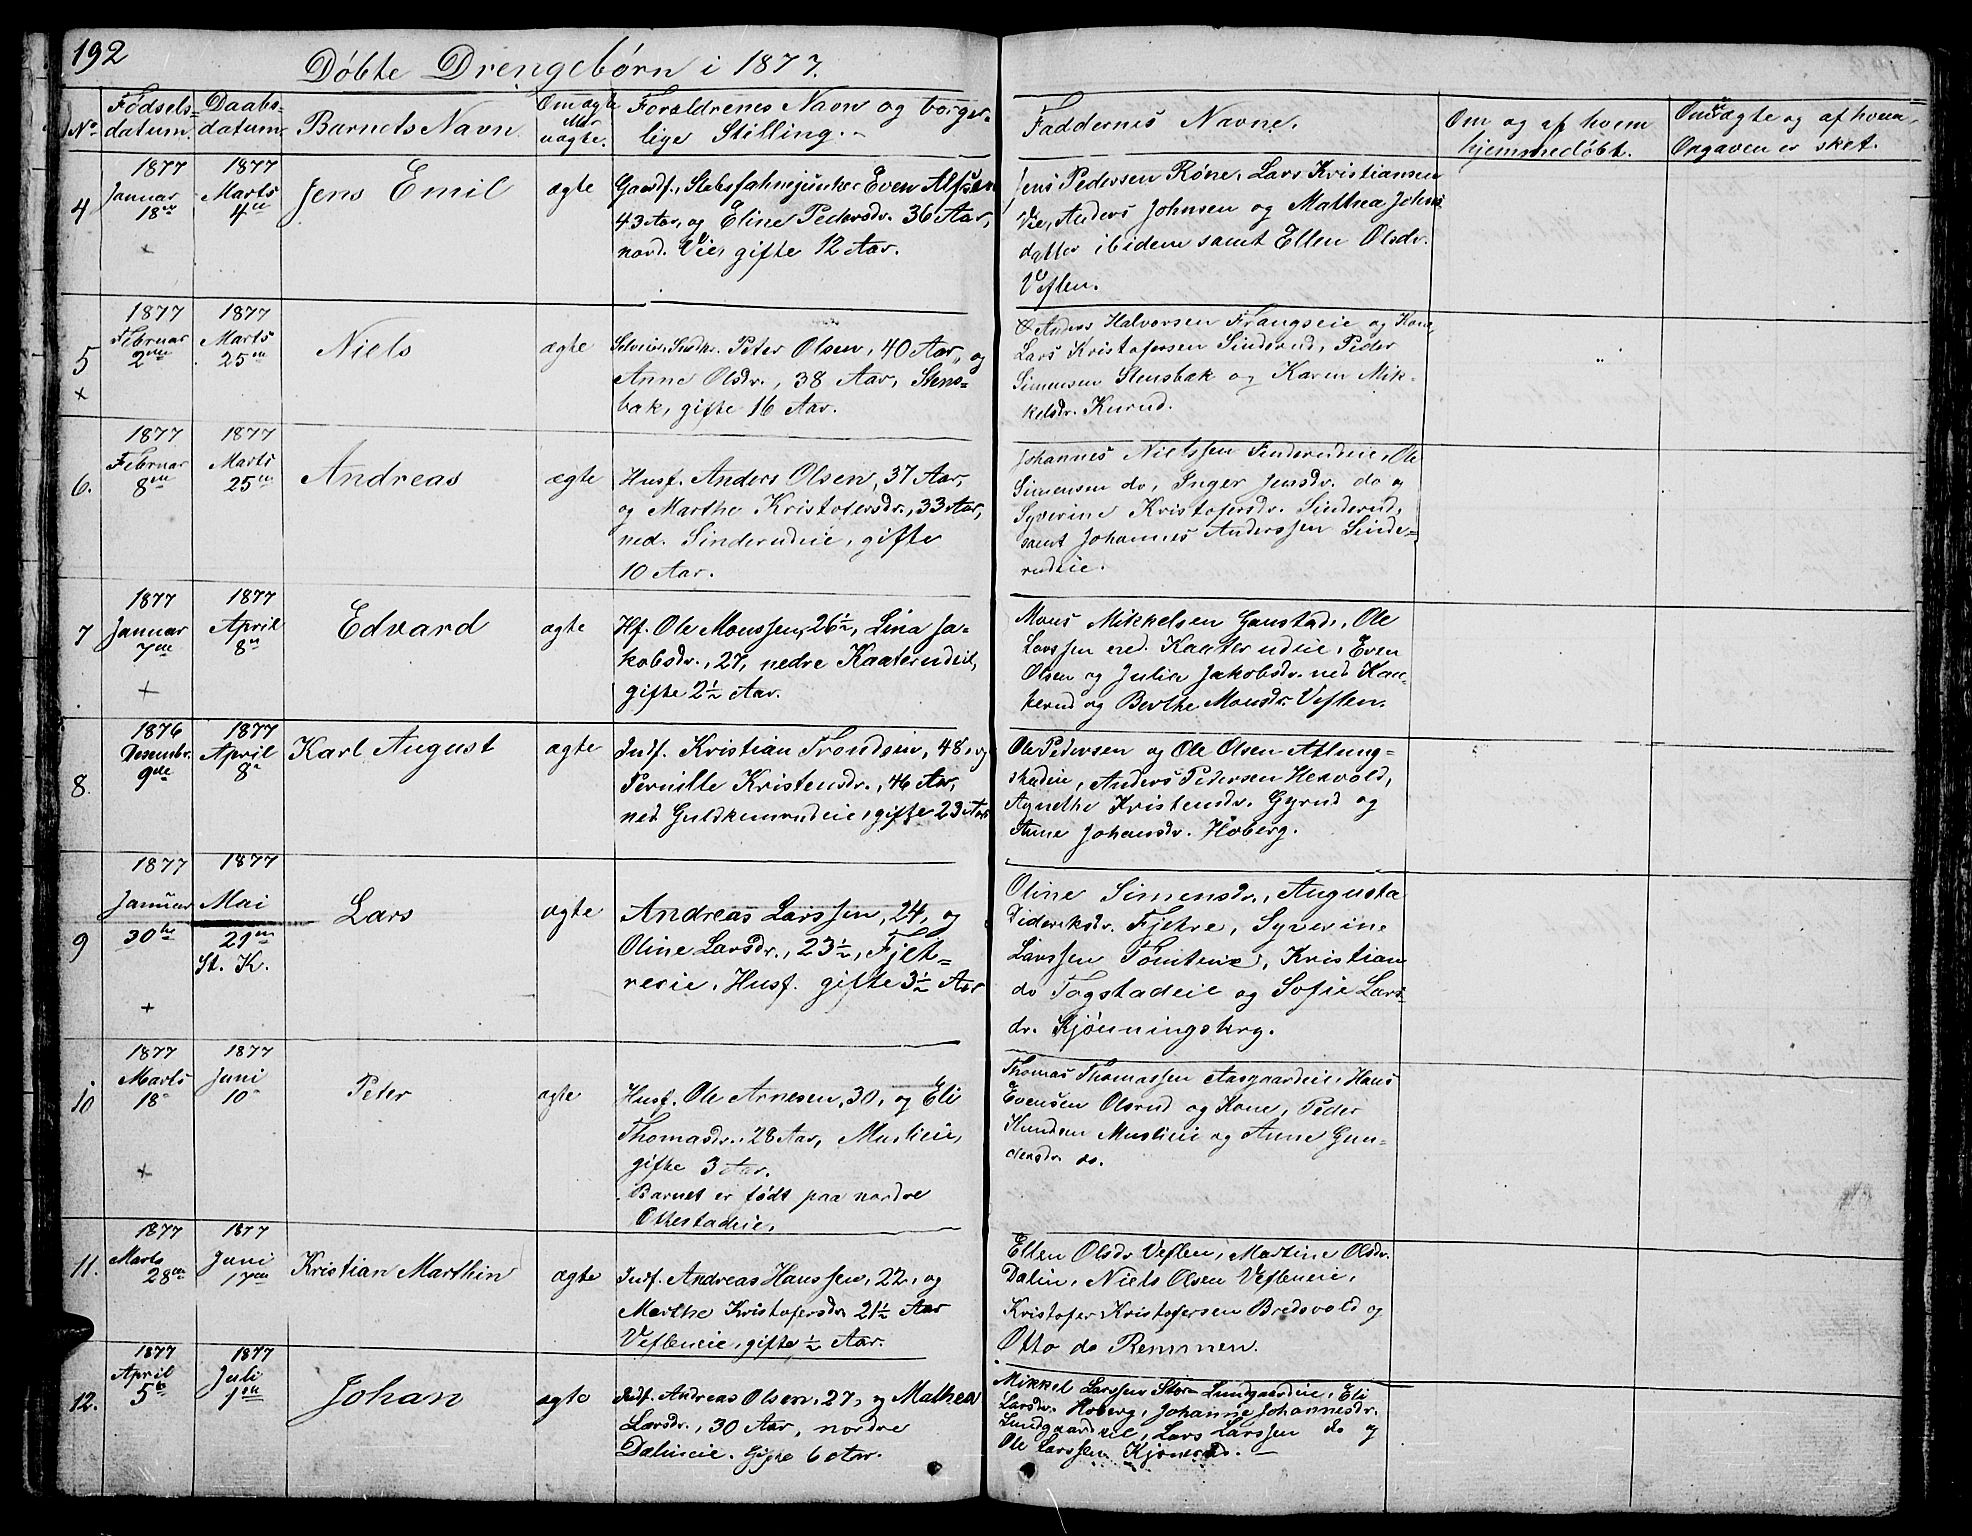 192
Døbte Drengebørn i 1877.
No
Fødsels-
datum.
Daabs-
datum
Barnets Navn
Om ægte
eller
uægte.
Forældrenes Navn og borger-
lige Stilling.
Faddernes Navne.
Om og af hvem
hjemmedøbt.
Om uægte og af hvem
Opgaven er sket.
4
1877
Januar
18de
1877
Marts
4de
Jens Emil
ægte
Gaardf. Stabsfahnejunker Even Alfsen
43 Aar, og Eline Pedersdr. 36 Aar,
nord. Vie, gifte 12 Aar.
Jens Pedersen Røne, Lars Kristiansen
Vie, Anders Johnsen og Mathea Johns
datter ibidem samt Ellen Olsdr.
Veflen.
5
+
1877
Februar
2den
1877
Marts
25de
Niels
ægte
Peter Olsen, 40 Aar, og
Anne Olsdr., 38 Aar, Stens-
bæk, gifte 16 Aar.
Anders Halvorsen Frangseie og Kone,
Lars Kristofersen Sinderud, Peder
Simensen Stensbæk og Karen Mik-
kelsdr. Kurud.
6.
1877
Februar
8de
1877
Marts
25de
Andreas
ægte
Husf. Anders Olsen, 37 Aar,
og Marthe Kristofersdr., 33 Aar,
ned. Sinderudeie, gifte
10 Aar.
Johannes Nielssen Sinderudeie, Ole
Simensen do, Inger Jensdr. do og
Syverine Kristofersdr. Sinderud,
samt Johannes Anderssen Sinde-
rudeie.
7
1877
Januar
7de
+
1877
April
8de
Edvard
ægte
Hf. Ole Monssen, 26½, Lina Ja-
kobsdr., 27, nedre Kaaterudeie,
gifte 2½ Aar.
Mons Mikkelsen Gaustad, Ole
Larssen ned. Kaaterudeie, Even
Olsen og Julia Jakobsdr. ned Kaa-
terud og Berthe Monsdr. Veflen.
8.
1876
Desembr.
9de
1877
April
8de
Karl August
ægte
Indf. Kristian Trondsen, 48, og
Pernille Kristensdr., 46 Aar,
ned Guldkunrudeie, gifte 23 Aar
Ole Pedersen og Ole Olsen Atlung-
stadeie, Anders Pedersen Hexvold,
Agnethe Kristensdr. Gyrud og
Anne Johansdr. Hoberg.
9
1877
Januar
30te
+
1877
Mai
21de
St. K.
Lars
ægte
Andreas Larssen, 24, og
Oline Larsdr., 23½, Fjet-
reeie, Husf. gifte 3½ Aar
Oline Simensdr., Augusta
Dideriksdr. Fjetre, Syverine
Larssen Tomteeie, Kristian
do Togstadeie og Sofie Lars-
dr. Kjønningsberg.
10
1877
Marts
18
+
1877
Juni
10
Peter
ægte
Husf. Ole Arnesen, 30, og Eli
Thomasdr., 28 Aar, Muslieie,
gifte 3 Aar.
Barnet er født paa nordre
Ottestadeie.
Thomas Thomassen Aasgaardeie, Hans
Evensen Olsrud og Kone, Peder
Knudsen Muslieie og Anne Gun-
dersdr. do.
11.
1877
Marts
28de
1877
Juni
17de
Kristian Marthin
ægte
Indf. Andreas Hanssen, 22, og
Marthe Kristofersdr. 21½ Aar
Vefleneie, gifte ½ Aar.
Ellen Olsdr Veflen, Martine Olsdr.
Dalin, Niels Olsen Vefleneie,
Kristofer Kristofersen Bredvold og
Otto do Remmen.
12.
1877
April
5te
1877
Juli
1ste
Johan
ægte
Indf. Andreas Olsen, 27, og Mathea
Larsdr., 30 Aar, nordre
Dalineie. Gifte 6 Aar.
Mikkel Larssen Stor-Lundgaardeie, Eli
Larsdr. Hoberg, Johanne Johannesdr.
Lundgaardeie, Lars Larssen do og
Ole Larssen Kjønerud.